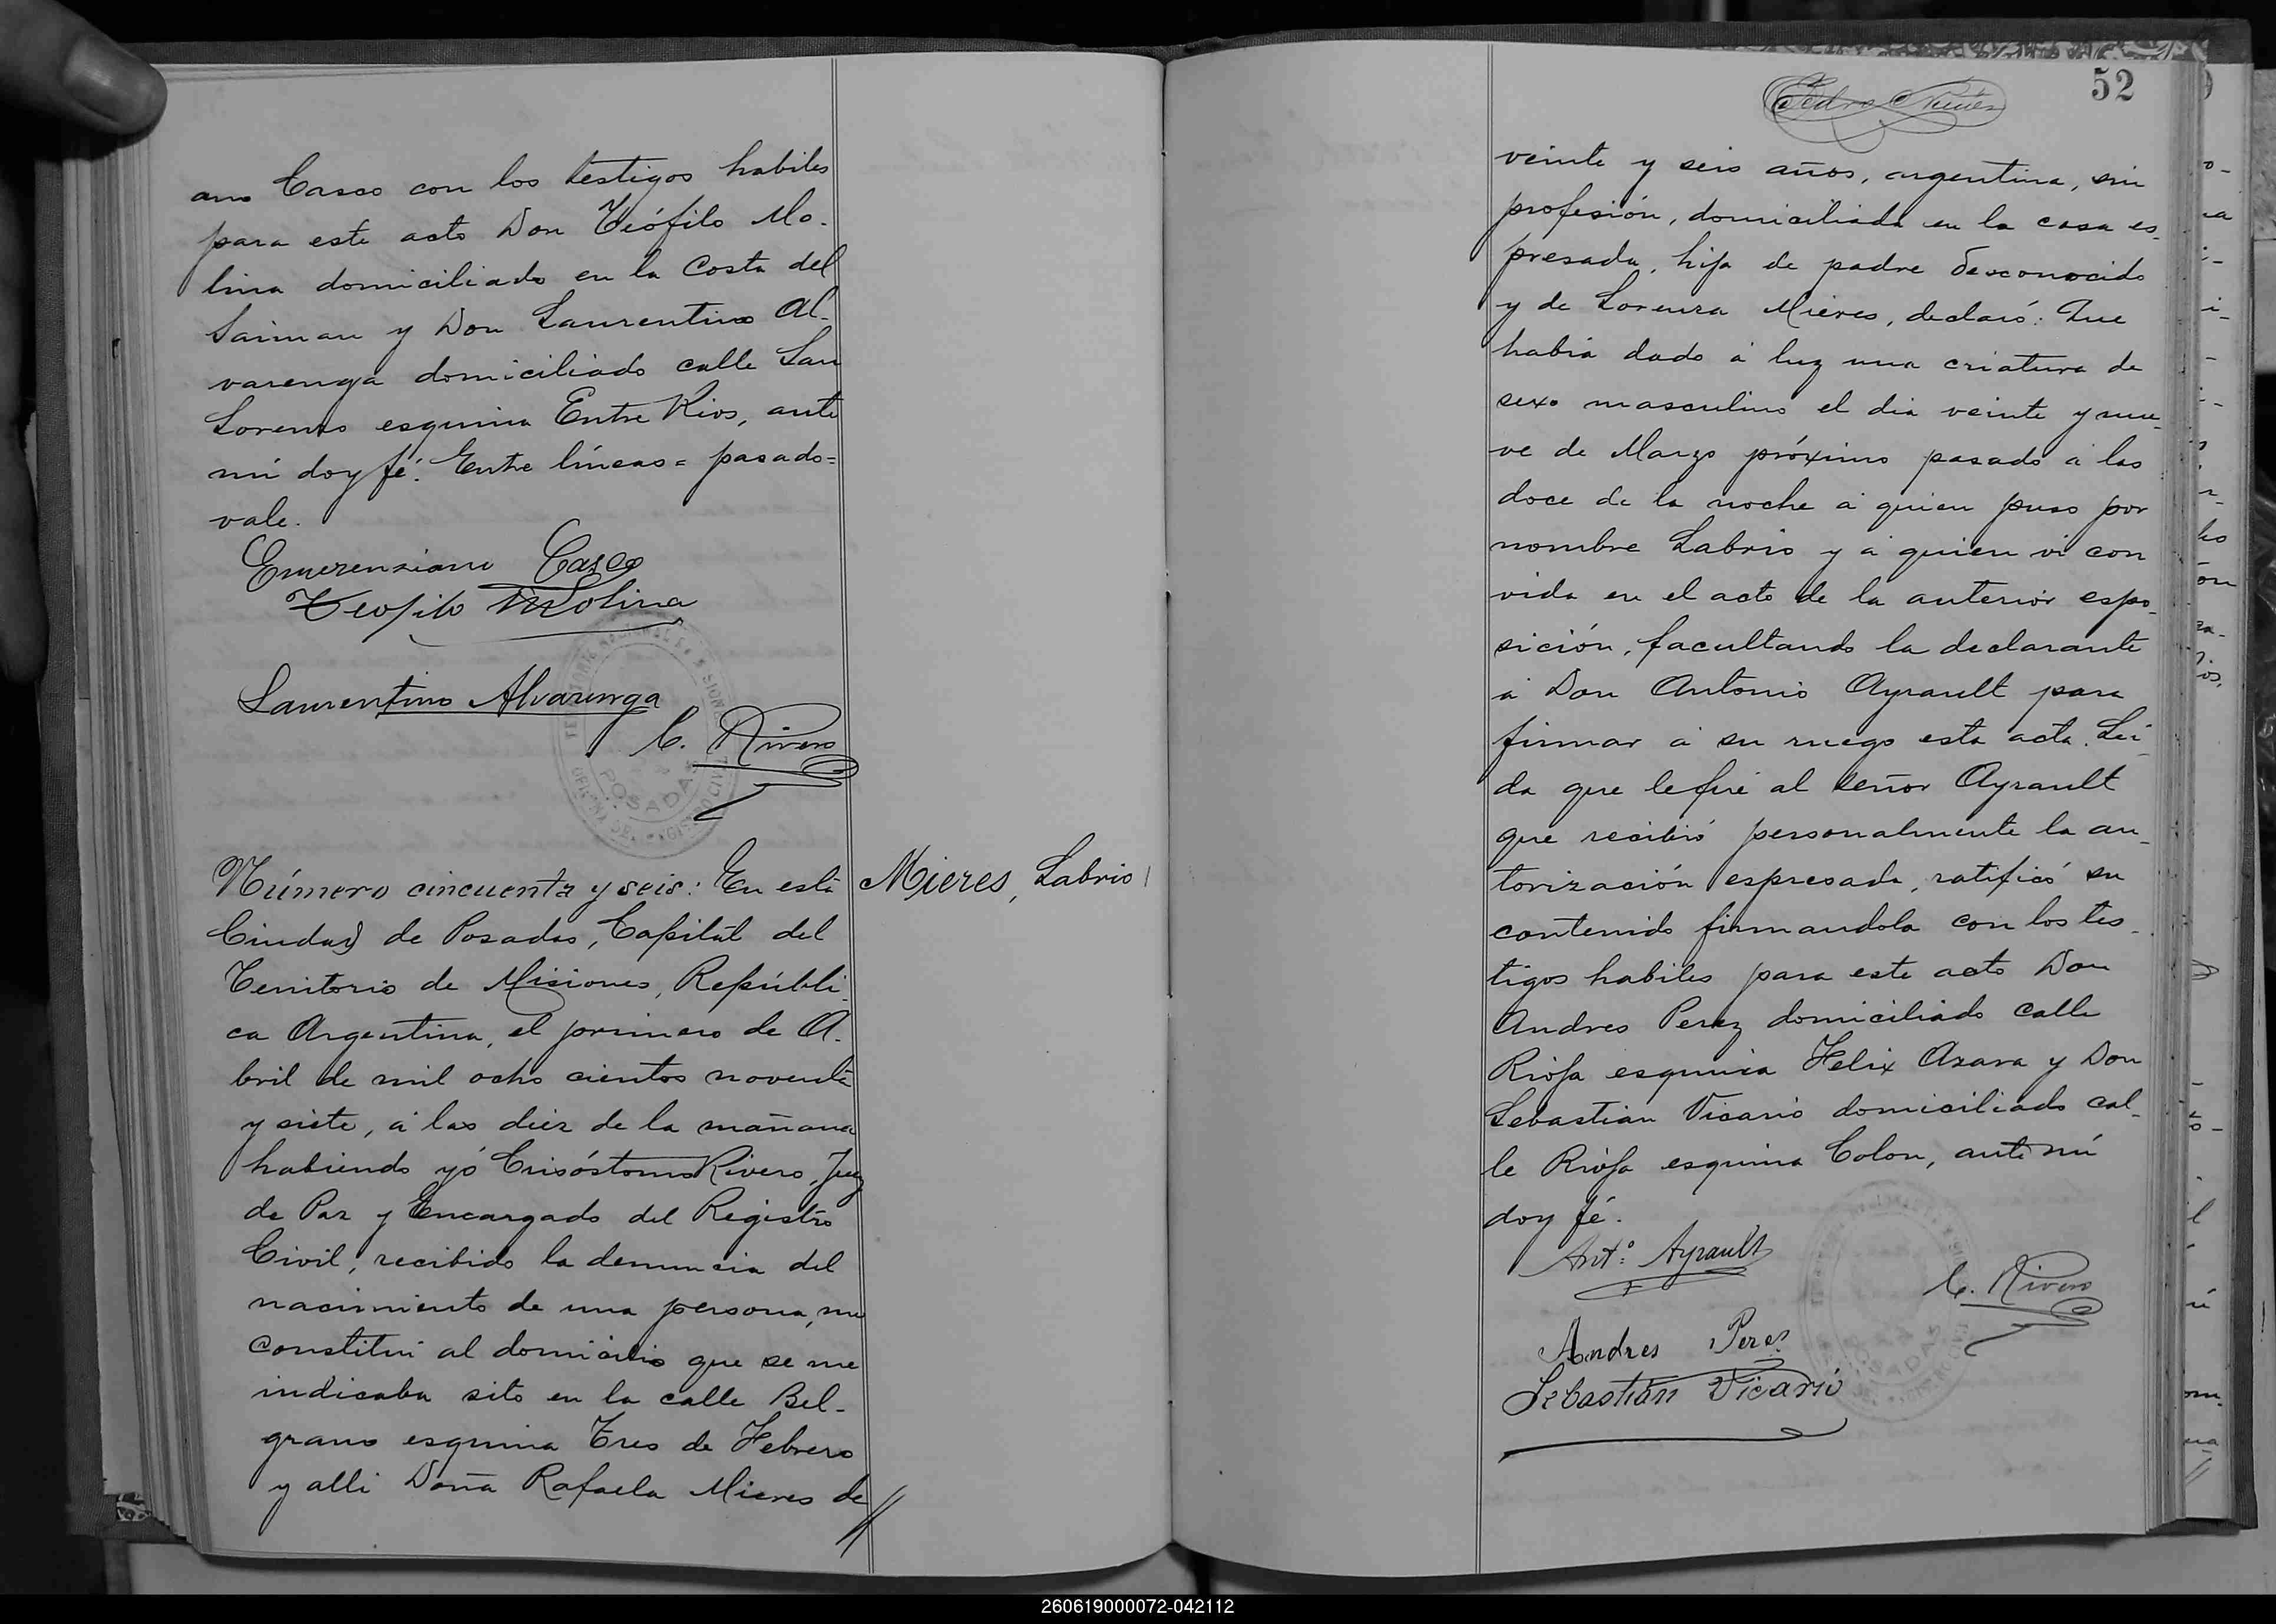 ano Casco con los testigos habiles
para este acto Don Teófilo Mo-
lina domiciliado en la Costa del
Saiman y Don Laurentino Al-
varenga domiciliado calle San
Lorenzo esquina Entre Rios, ante
mi doy fé. Entre líneas = pasado =
vale.
Emerenziano Casco
Teofilo Molina
Laurentino Alvarenga
C. Rivero
POSADAS
Número cincuenta y seis: En esta
Ciudad de Posadas, Capital del
Territorio de Misiones, Repúbli-
ca Argentina, el primero de A-
bril de mil ocho cientos noventa
y siete, á las diez de la mañana
habiendo yó Crisóstomo Rivero, Juez
de Paz y Encargado del Registro
Civil, recibido la denuncia del
nacimiento de una persona, me
constitui al domicilio que se me
indicaba sito en la calle Bel-
grano esquina Tres de Febrero
y alli Doña Rafaela Mieres de
Mieres, Labrio
52
Pedro
veinte y seis años, argentina, sin
profesión, domiciliada en la casa es-
presada, hija de padre desconocido
y de Lorenza Mieres, declaró: Que
habia dado á luz una criatura de
sexo masculino el dia veinte y nue-
ve de Marzo próximo pasado á las
doce de la noche á quien puso por
nombre Labrio y á quien vi con
vida en el acto de la anterior espo-
sición, facultando la declarante
á Don Antonio Ayrault para
firmar á su ruego esta acta. Lei-
da que le fué al señor Ayrault
que recibió personalmente la au-
torización espresada, ratificó su
contenido firmandola con los tes-
tigos habiles para este acto Don
Andres Perez domiciliado calle
Rioja esquina Felix Azara y Don
Sebastian Vicario domiciliado cal-
le Rioja esquina Colon, ante mi
doy fé.
Ant.º Ayrault
C. Rivero
Andres Perez
Sebastián Vicario
POSADAS
260619000072-042112